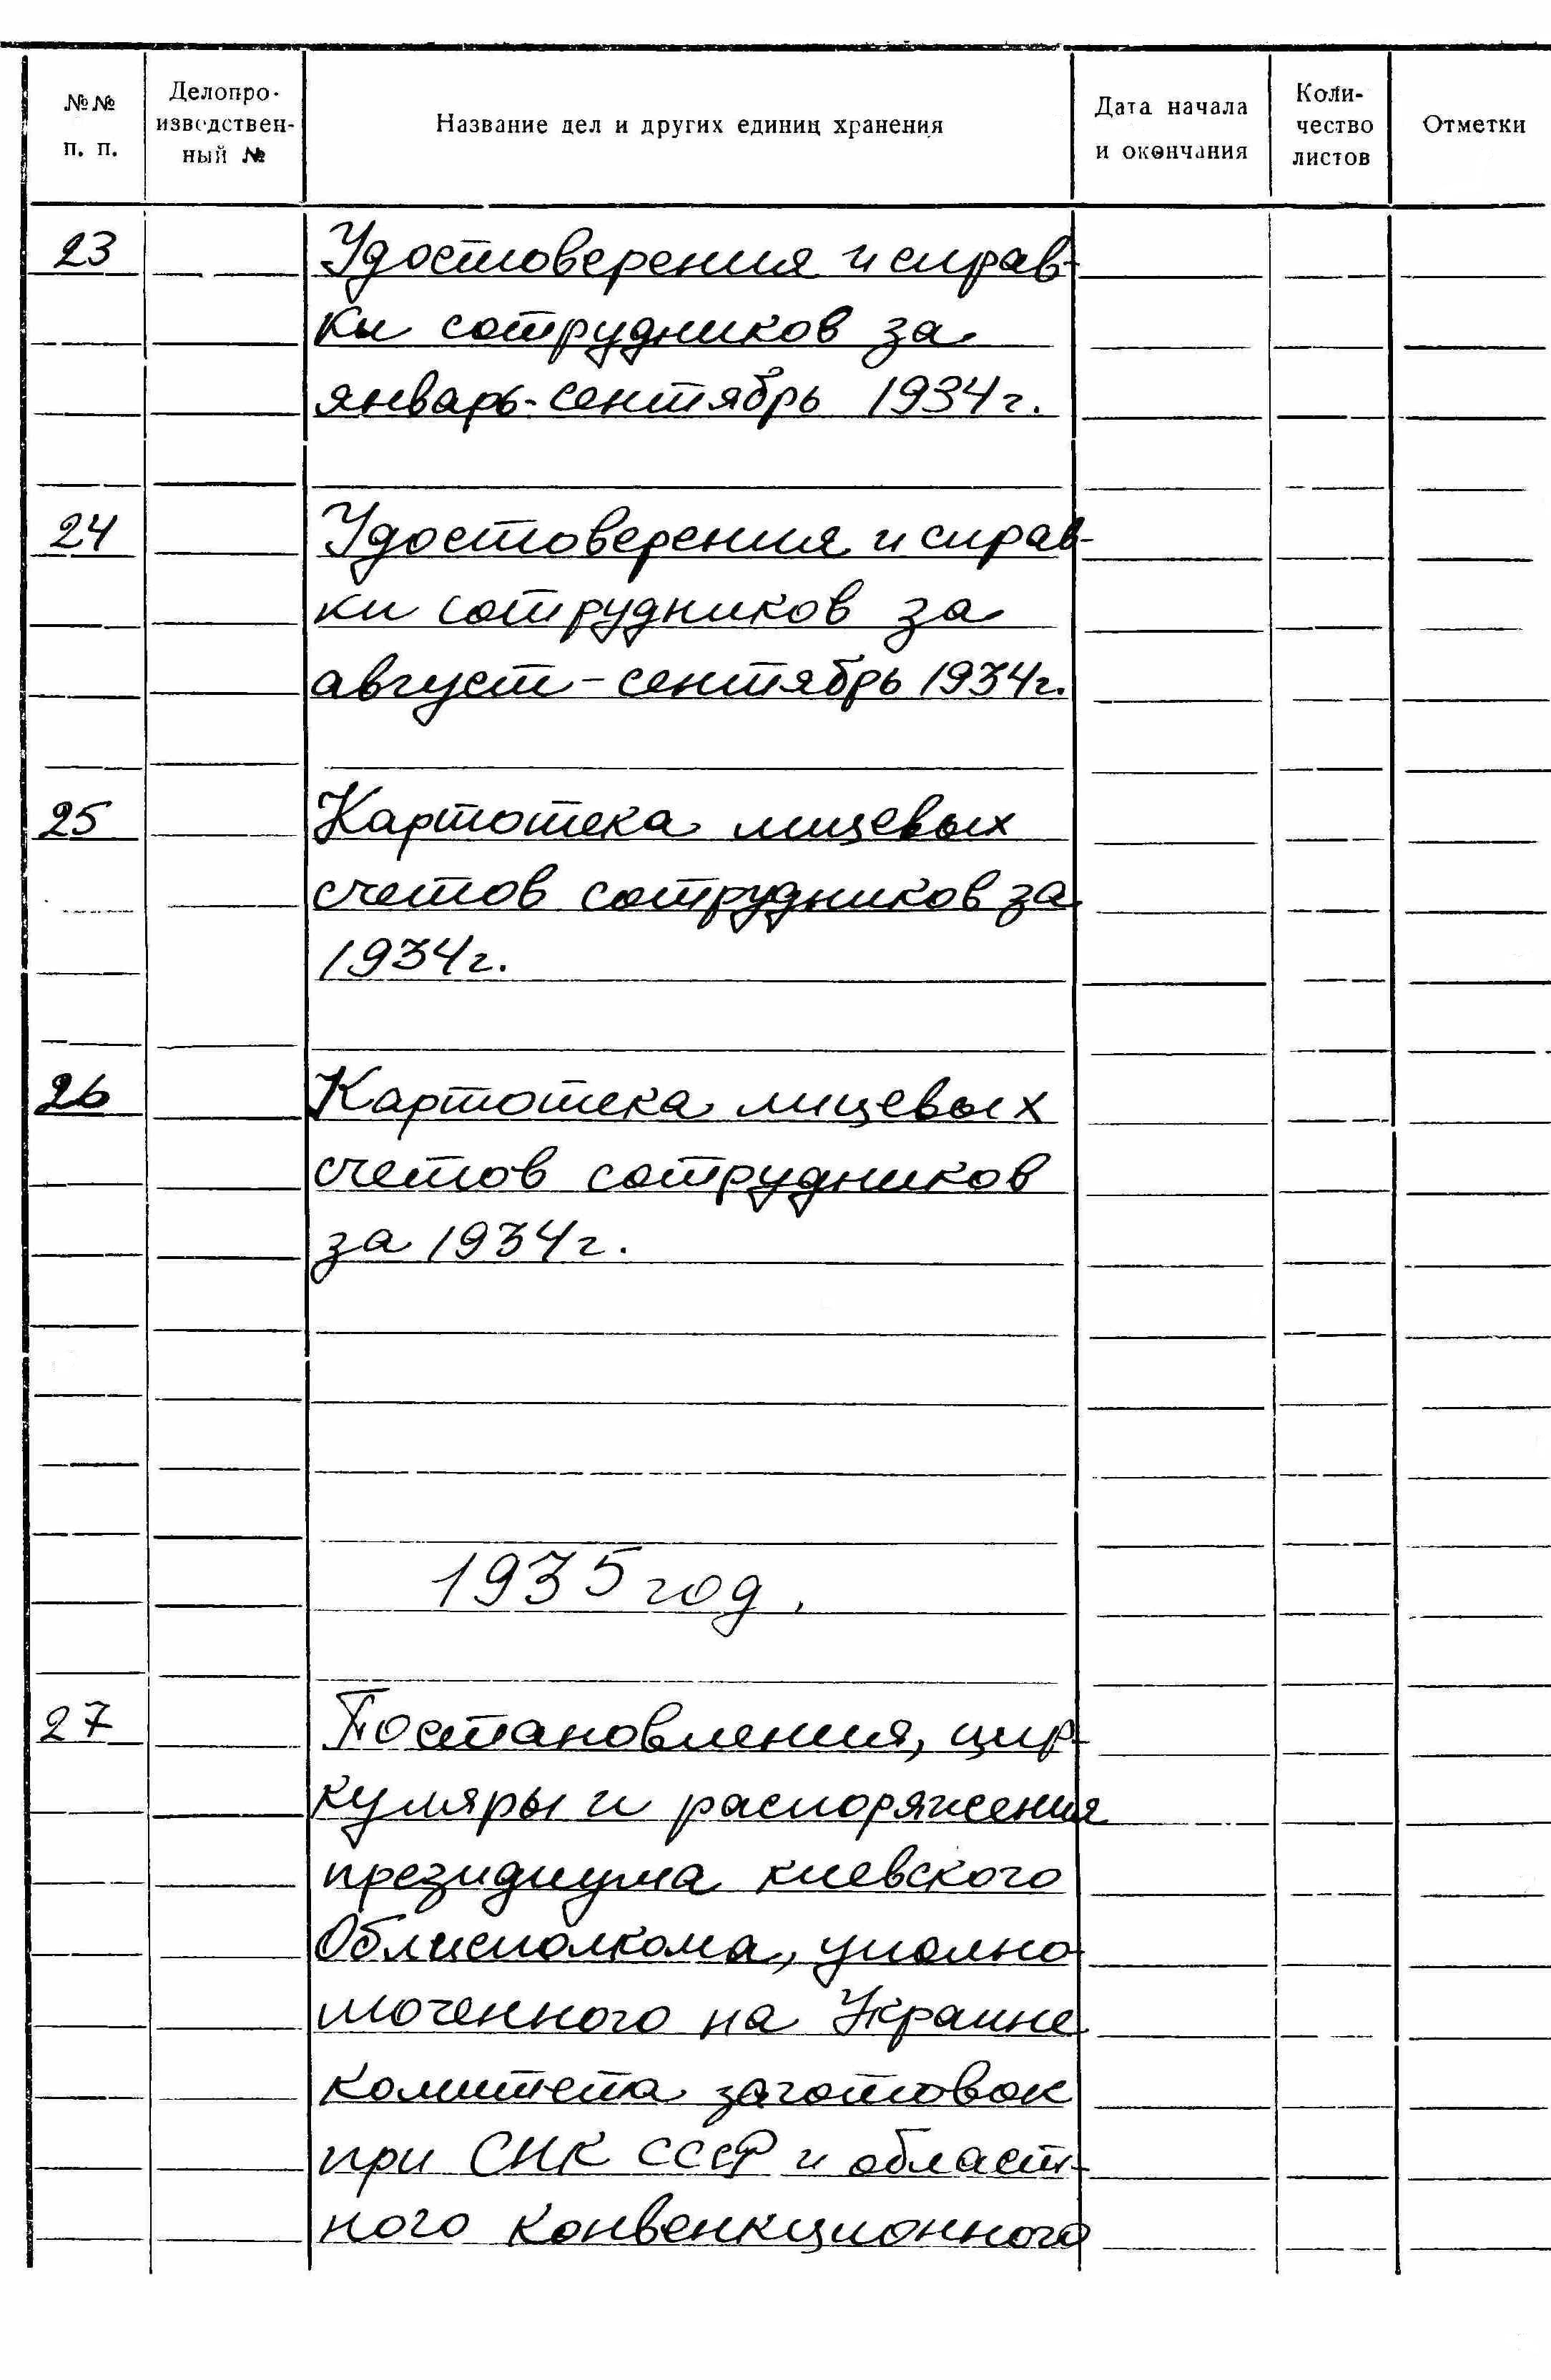 №№ п. п.
Делопро-
изводствен-
ный №
Название дел и других единиц хранения
Дата начала
и окончания
Коли-
чество
листов
Отметки
23 Удостоверения и справ-
ки сотрудников за
январь-сентябрь 1934г.
24 Удостоверения и справ-
ки сотрудников за
август-сентябрь 1934г.
25 Картотека лицевых
счетов сотрудников за
1934г.
26 Картотека лицевых
счетов сотрудников
за 1934г.
1935 год.
27 Постановления, цир-
куляры и распоряжения
президиума киевского
Облисполкома, уполно-
моченного на Украине
комитета заготовок
при СНК СССР и област-
ного конвенкционного